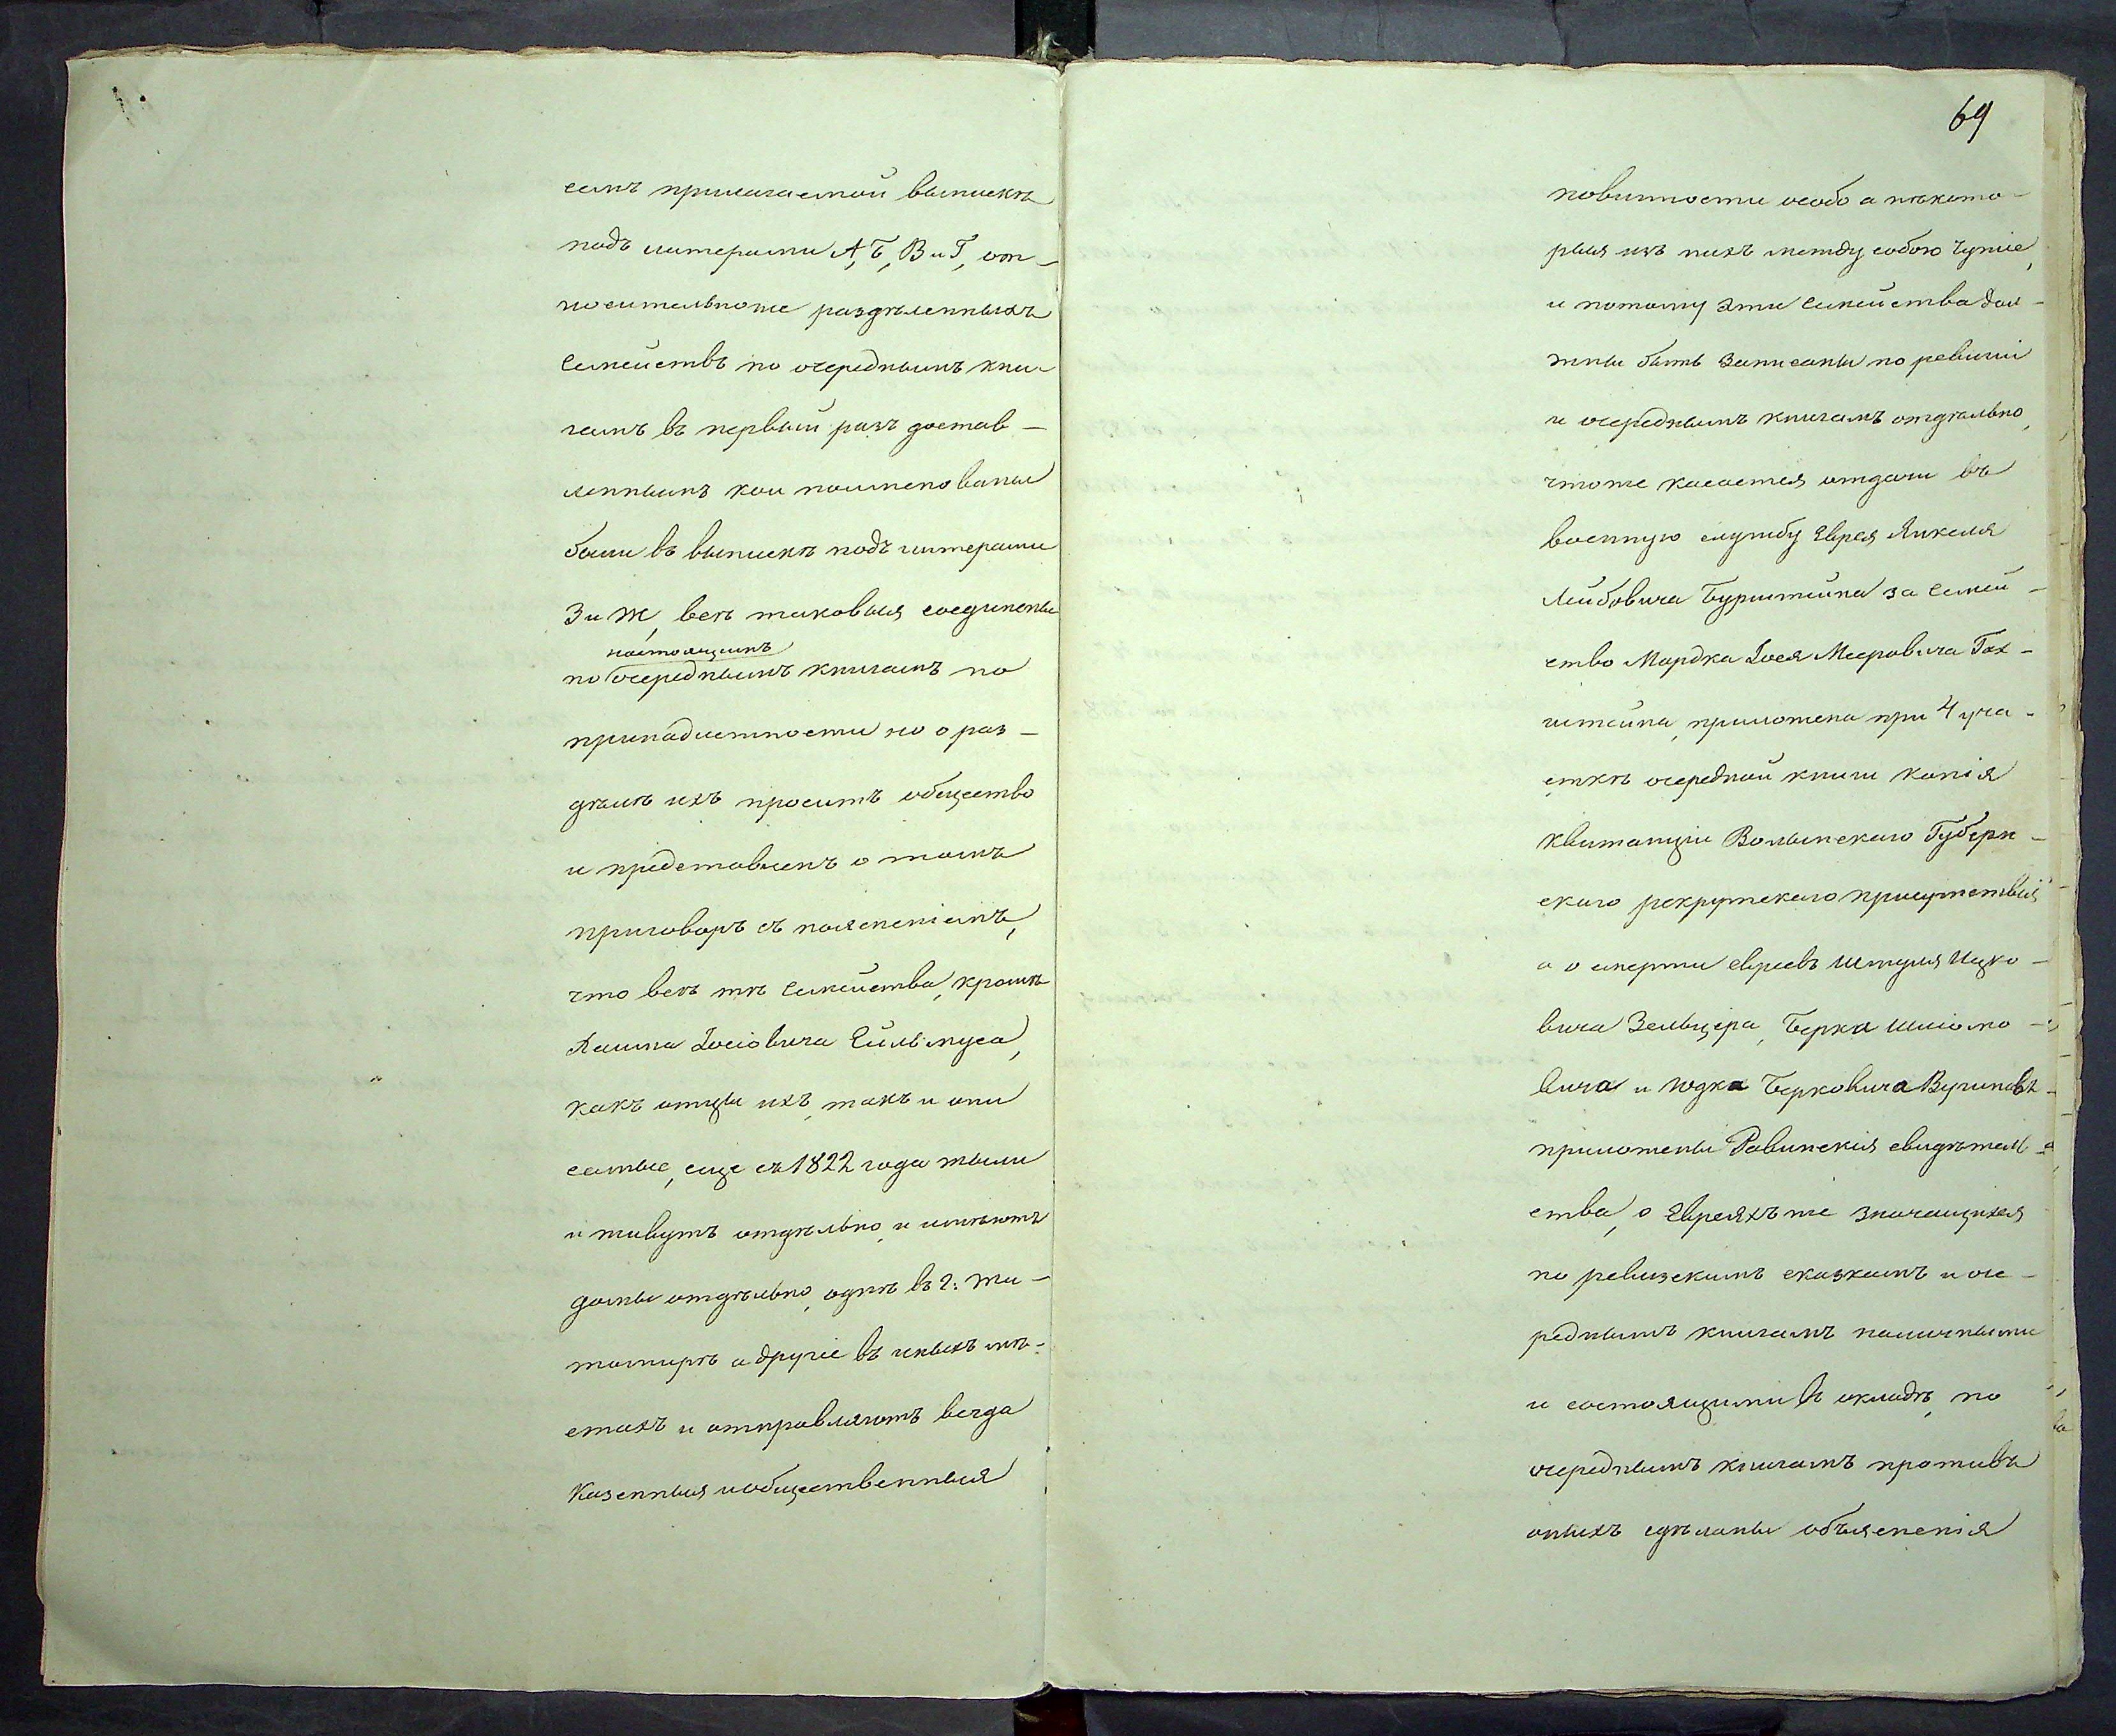 семъ прилагаемой выпискѣ
подъ литерами А, Б, В и Г, от-
носительноже раздѣленныхъ
семействъ по очереднымъ кни-
гамъ въ первый разъ достав-
леннымъ кои поименованы
были въ выпискѣ подъ литерами
З и Ж, всѣ таковыя соединены
настоящимъ
по очереднымъ книгамъ по
принадлежности но о раз-
дѣлѣ ихъ проситъ общество
и представилъ о томъ
приговоръ съ поясненіемъ,
что всѣ тѣ семейства, кромѣ
Іосіовича
какъ отцы ихъ, такъ и они
самые, еще съ 1822 года жыли
и живутъ отдѣльно, и имѣютъ
домы отдѣльно, однѣ въ г: Жи-
томирѣ а другіе въ иныхъ мѣ-
стахъ и отправляютъ всегда
казенныя и общественныя
69
повинности особо а нѣкото-
рыя изъ нихъ между собою чужіе,
и потому эти семейства дол-
жны быть записаны по ревизіи
и очереднымъ книгамъ отдѣльно,
чтоже касается отдачи въ
военную службу Еврея Янкеля
Лейбовича Бурштейна за семей-
ство Мордка Іося Мееровича Гах-
штейна, приложена при 4 уча-
сткѣ очередной книги копія
квитанціи Волынскаго Губерн-
скаго рекрутскаго присутствія
а о смерти евреевъ Шмуля Ицко-
вича Зельцера, Берка Шліомо-
вича и Юдка Берковича
приложены Равинскія свидѣтель-
ства, о Евреяхъ же значащихся
по ревизскимъ сказкамъ и оче-
реднымъ книгамъ наличными
и состоящими въ окладѣ, по
очереднымъ книгамъ противъ
оныхъ сдѣланы объясненія